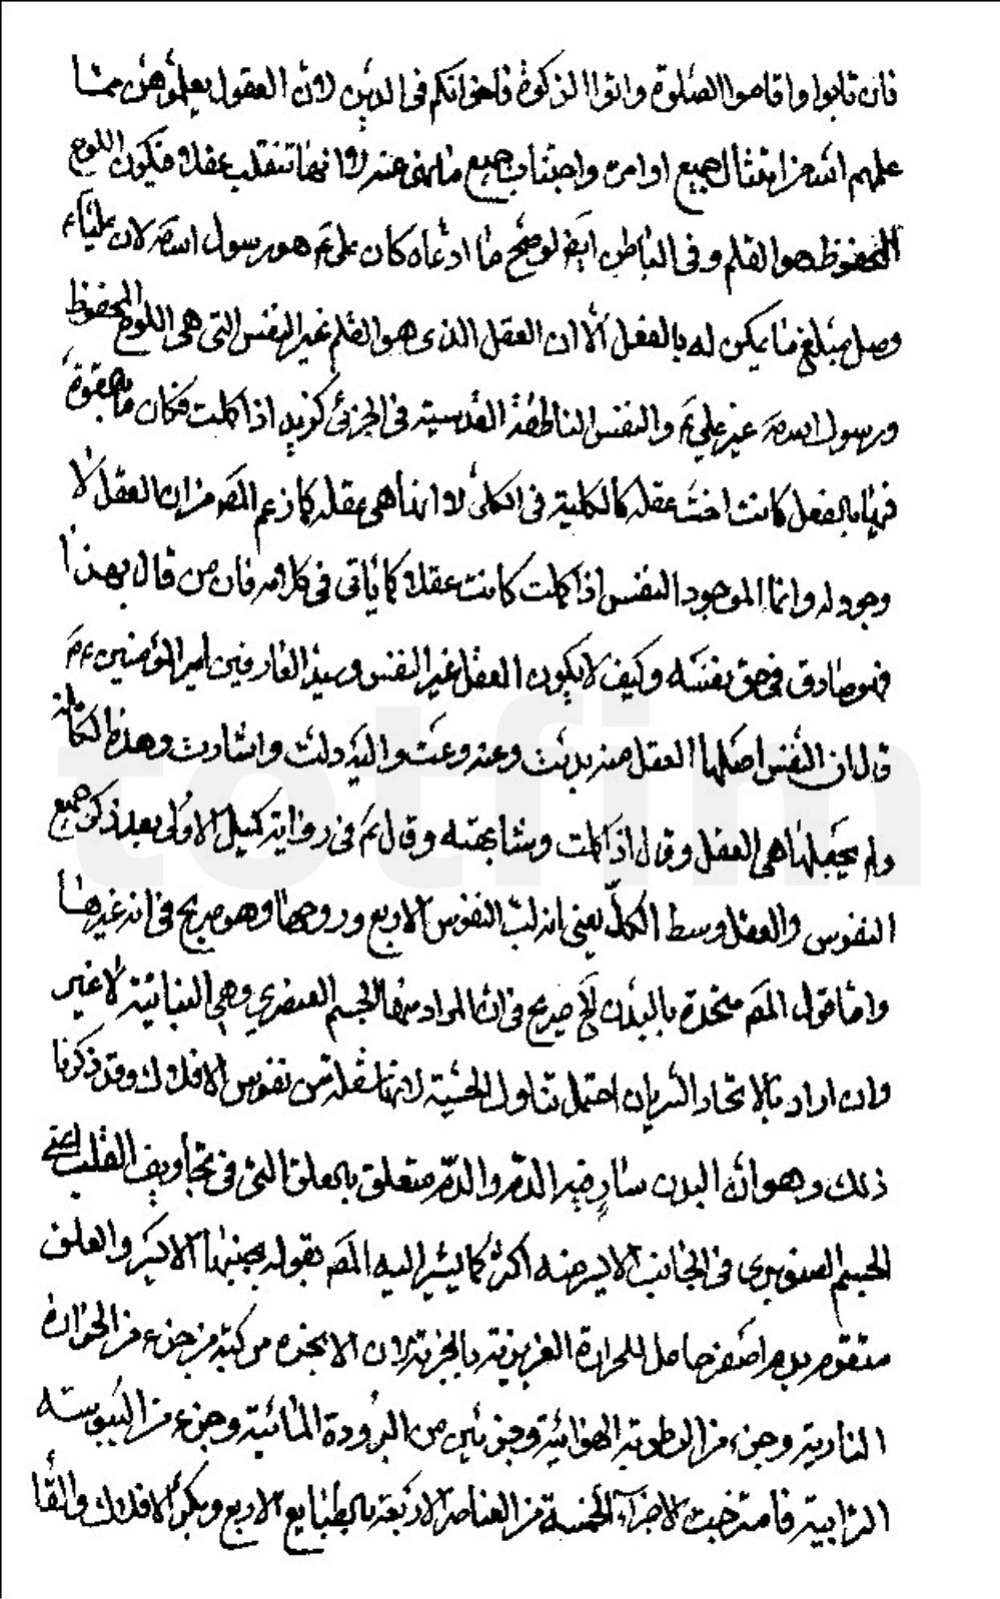 فان تابوا واقاموا الصلوة واتوا الزكوة فاخوانكم فى الدين لان العقول يعلمو هن مما
عليهم اشد من امتثال جميع اوامره واجتناب جميع ما نهى عنه لا انها تنقلب عقلا فيكون اللوح
المحفوظ هو القلم وفى الباطن ايضا لو صح ما ادعاه كان على ع هو رسول الله ص لان عليا ع
وصل مبلغ ما يمكن له بالفعل الا ان العقل الذى هو القلم غير النفس التى هى اللوح المحفوظ
ورسول الله ص غير علي ع والنفس الناطقة القدسية فى الجزئى كزيد اذا كملت فكان ما بالقوة
فيها بالفعل كانت اخت عقله كالكلية فى الكلى لا انها هى عقله كما زعم المص من ان العقل لا
وجود له وانما الموجود النفس اذا كملت كانت عقلا كما ياتى فى كلامه فان من قال بهذا
فهو صادق فى حق نفسه وكيف لا يكون العقل غير النفس وسيد العارفين امير المؤمنين ع
قال ان النفس اصلها العقل منه بدئت وعنه وعت واليه دلت واشارت وهذه الكاملة
ولم يجعلها هى العقل وقال اذا كملت وشابهته وقال ع فى رواية كميل الاولى بعد ذكر جميع
النفوس والعقل وسط الكل يعنى انه لب النفوس الاربع وروحها وهو صريح فى انه غيرها
واما قول المص متحدة بالبدن الخ صريح فى ان المراد منها الجسم العنصري وهي النباتية لا غير
وان اراد بالاتحاد السريان احتمل تناول الحسية لانها مثلة من نفوس الافلاك وقد ذكرنا
ذلك وهو ان البدن سارٍ فيه الدم والدم متعلق بالعلق التى فى تجاويف القلب اعنى
الجسم الصنوبرى فى الجانب الايسر منه اكثر كما يشير اليه المص بقوله بجنبها الايسر والعلق
متقوم بدم اصفر حامل للحرارة الغريزية بالبخرية لان الابخرة مركبة من جزء من الحرارة
النارية وجزء من الرطوبة الهوائية وجزئين من البرودة المائية وجزء من اليبوسة
الترابية فامتزجت الاجزاء الخمسة من العناصر الاربعة بالطبايع الاربع وبكر الافلاك والقا